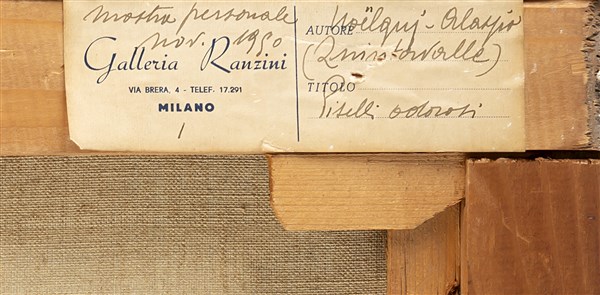 mostra personale
nov. 1950
Galleria Ranzini
VIA BRERA, 4 - TELEF. 17.291
MILANO
1
AUTORE Noëlquj - Alassio
(Quintavalle)
TITOLO
Piselli odorosi